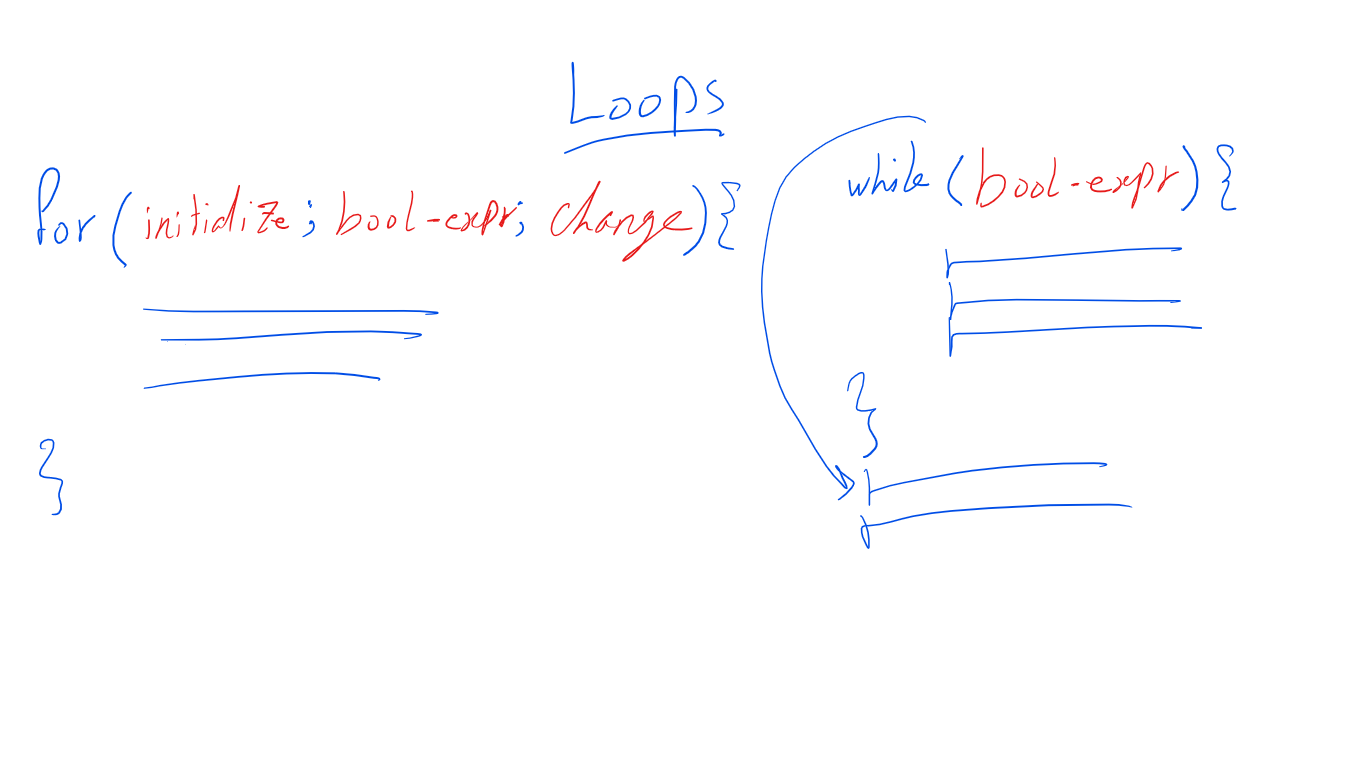 Loops
for (initialize; bool-expr; change) {
}
while (bool-expr) {
}